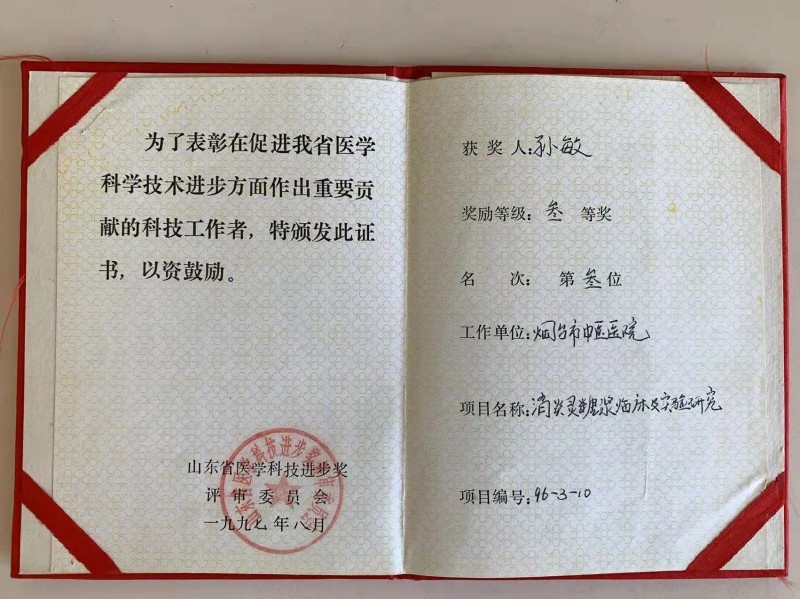 为了表彰在促进我省医学
科学技术进步方面作出重要贡
献的科技工作者，特颁发此证
书，以资鼓励。
山东省医学科技进步奖
评审委员会
一九九七年八月
获奖人：孙敏
奖励等级：叁等奖
名次：第叁位
工作单位：烟台市中医医院
项目名称：消炎灵糖浆临床及实验研究
项目编号：96-3-10